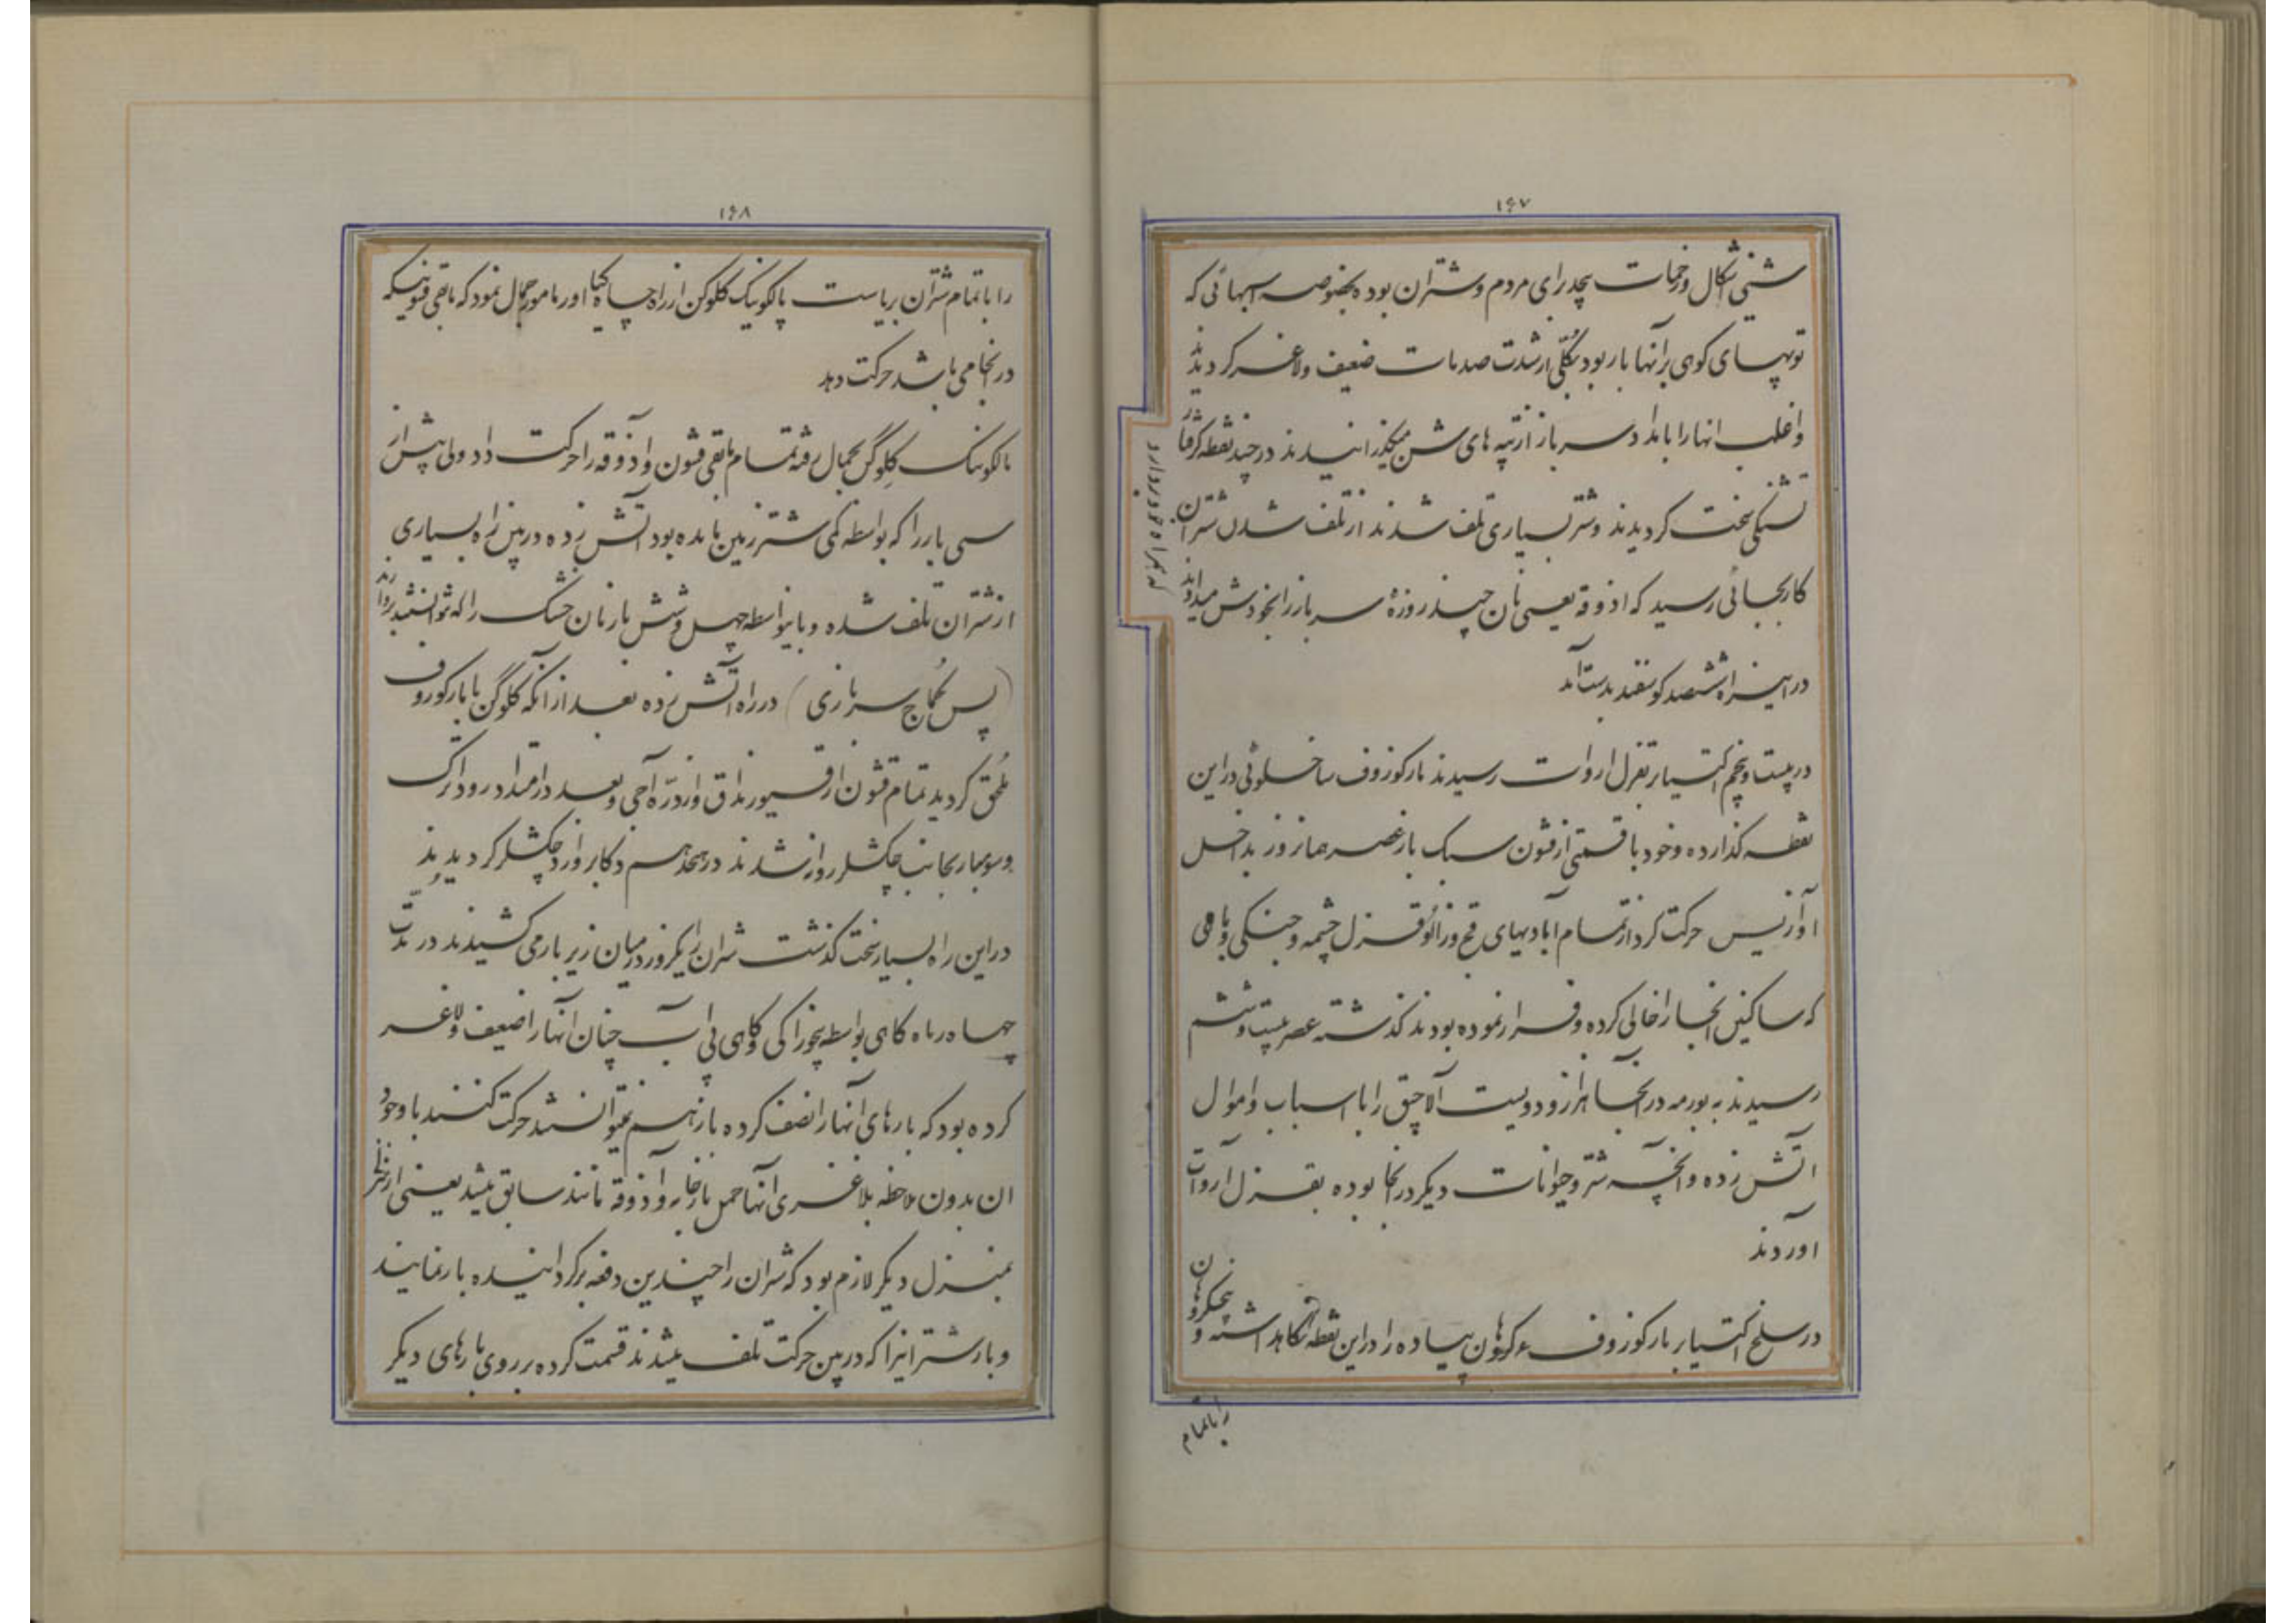 ۱۶۷
شنی اشکال و زحمات بیحد برای مردم و شتران بوده بخصوصه اسبهائی که
توپهای کوهی برآنها بار بود بکلّی از شدت صدمات ضعیف و لاغر کردیدند
و اغلب انها را بامداد سرباز از تپه های شن میکذرانیدند در چند نقطه کرفتار
تشنکی سخت کردیدند و شتر بسیاری تلف شدند از تلف شدن شتران
که همراه
کار بجائی رسید که اذوقه یعنی نان چند روزهٔ سرباز را بخودش میدادند
در این راه ششصد کوسفند بدست آمد
در بیست و پنجم اکتیابر بقزل اروات رسیدند مارکوزوف ساخلوئی در این
نقطه کذارده و خود با قسمتی از قشون سبک بار عصر همانروز بداخل
حرکت کرد از تمام آبادیهای قزل چشمه و جنکی و بامی
که ساکنین انجا را خالی کرده و فرار نموده بودند کذشته عصر بیست و ششم
رسیدند به بورمه در آنجا هزار و دویست آلاچق را با اسباب و اموال
اتش زده و انچه شتر و حیوانات دیکر در انجا بوده بقزل آروات
آوردند
در سلخ اکتیابر مارکوزوف پیاده را در این نقطه نکاهداشته و
را با تمام
۱۶۸
را با تمام شتران بریاست پالکونیک کلوکن از راه چاه اور مامور جمال نمود که باقی قشونیکه
در انجا می باشد حرکت دهد
پالکونیک کلوکن بجمال رفته تمام باقی قشون و آذوقه را حرکت داد ولی پیش از
سی بار را که بواسطه کمی شتر زمین مانده بود آتش زده در بین راه بسیاری
از شتران تلف شده و باینواسطه چهل و شش بار نان خشک را که نتوانستند بردارند
(پس کماج سربازی) در راه آتش زده بعد از انکه کلوکن با مارکوزوف
ملحق کردید تمام قشون از و از درّه آجی و بعد در امتداد رود اترک
و سومبار بجانب چکشلر روانه شدند در هجدهم دکابر وارد چکشلر کردیدند
در این راه بسیار سخت کذشت شتران را یکروز در میان زیر بار می کشیدند در مدّت
چهار ماه کاهی بواسطه بیخوراکی و کاهی بی آب چنان انها را ضعیف و لاغر
کرده بود که بارهای آنها را نصف کرده باز هم نمیتوانستند حرکت کنند با وجود
ان بدون ملاحظه بلاغری آنها حمل بارخانه و آذوقه مانند سابق میشد یعنی از منزلی
بمنزل دیکر لازم بود که شتران را چندین دفعه برکردانیده بار نمایند
و بار شترانیرا که در بین حرکت تلف میشدند قسمت کرده بر روی بارهای دیکر